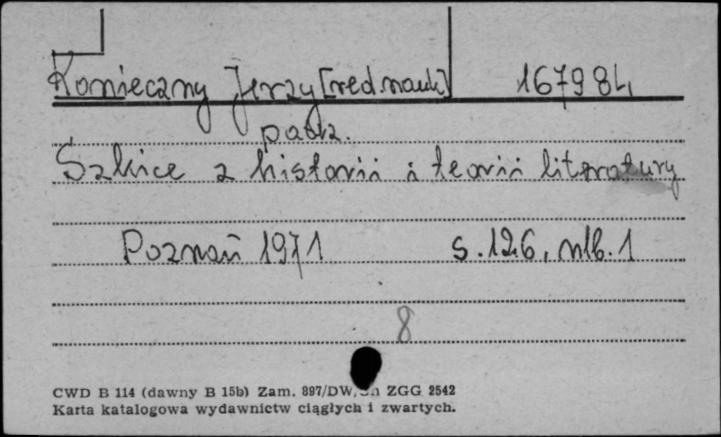 Konieczny Jerzy [red.nauk] 167984
patrz.
Szkice z historii i teorii literatury
Poznań 1971 s.126, nlb.1
8
CWD B 114 (dawny B 15b) Zam. 897/DW, ZGG 2542
Karta katalogowa wydawnictw ciągłych i zwartych.